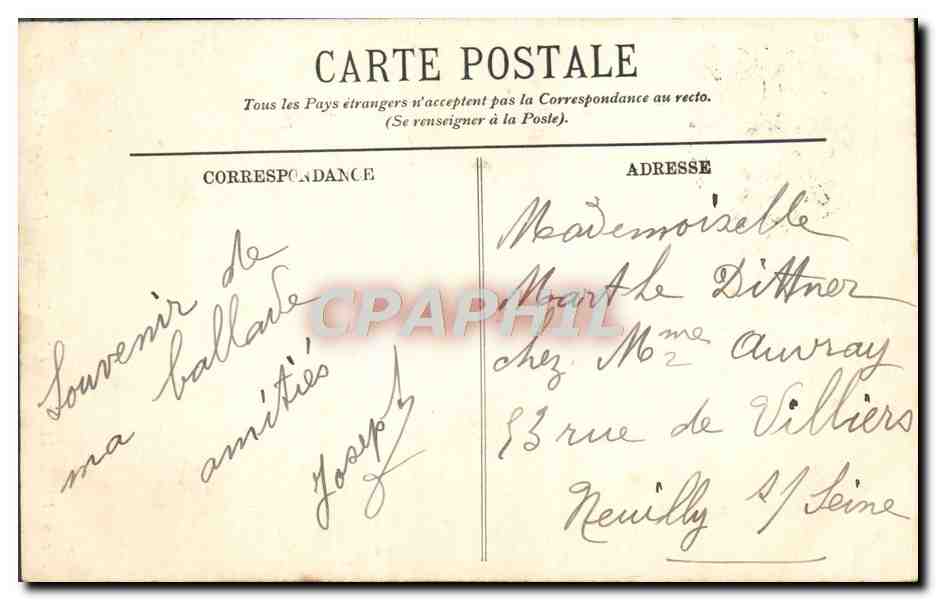 CARTE POSTALE
Tous les Pays étrangers n'acceptent pas la Correspondance au recto.
(Se renseigner à la Poste).
CORRESPONDANCE
ADRESSE
Souvenir de
ma ballade
amitiés
Joseph
Mademoiselle
Marthe Dittner
chez Mme Auvray
53 rue de Villiers
Neuilly s/ Seine
CPAPHIL